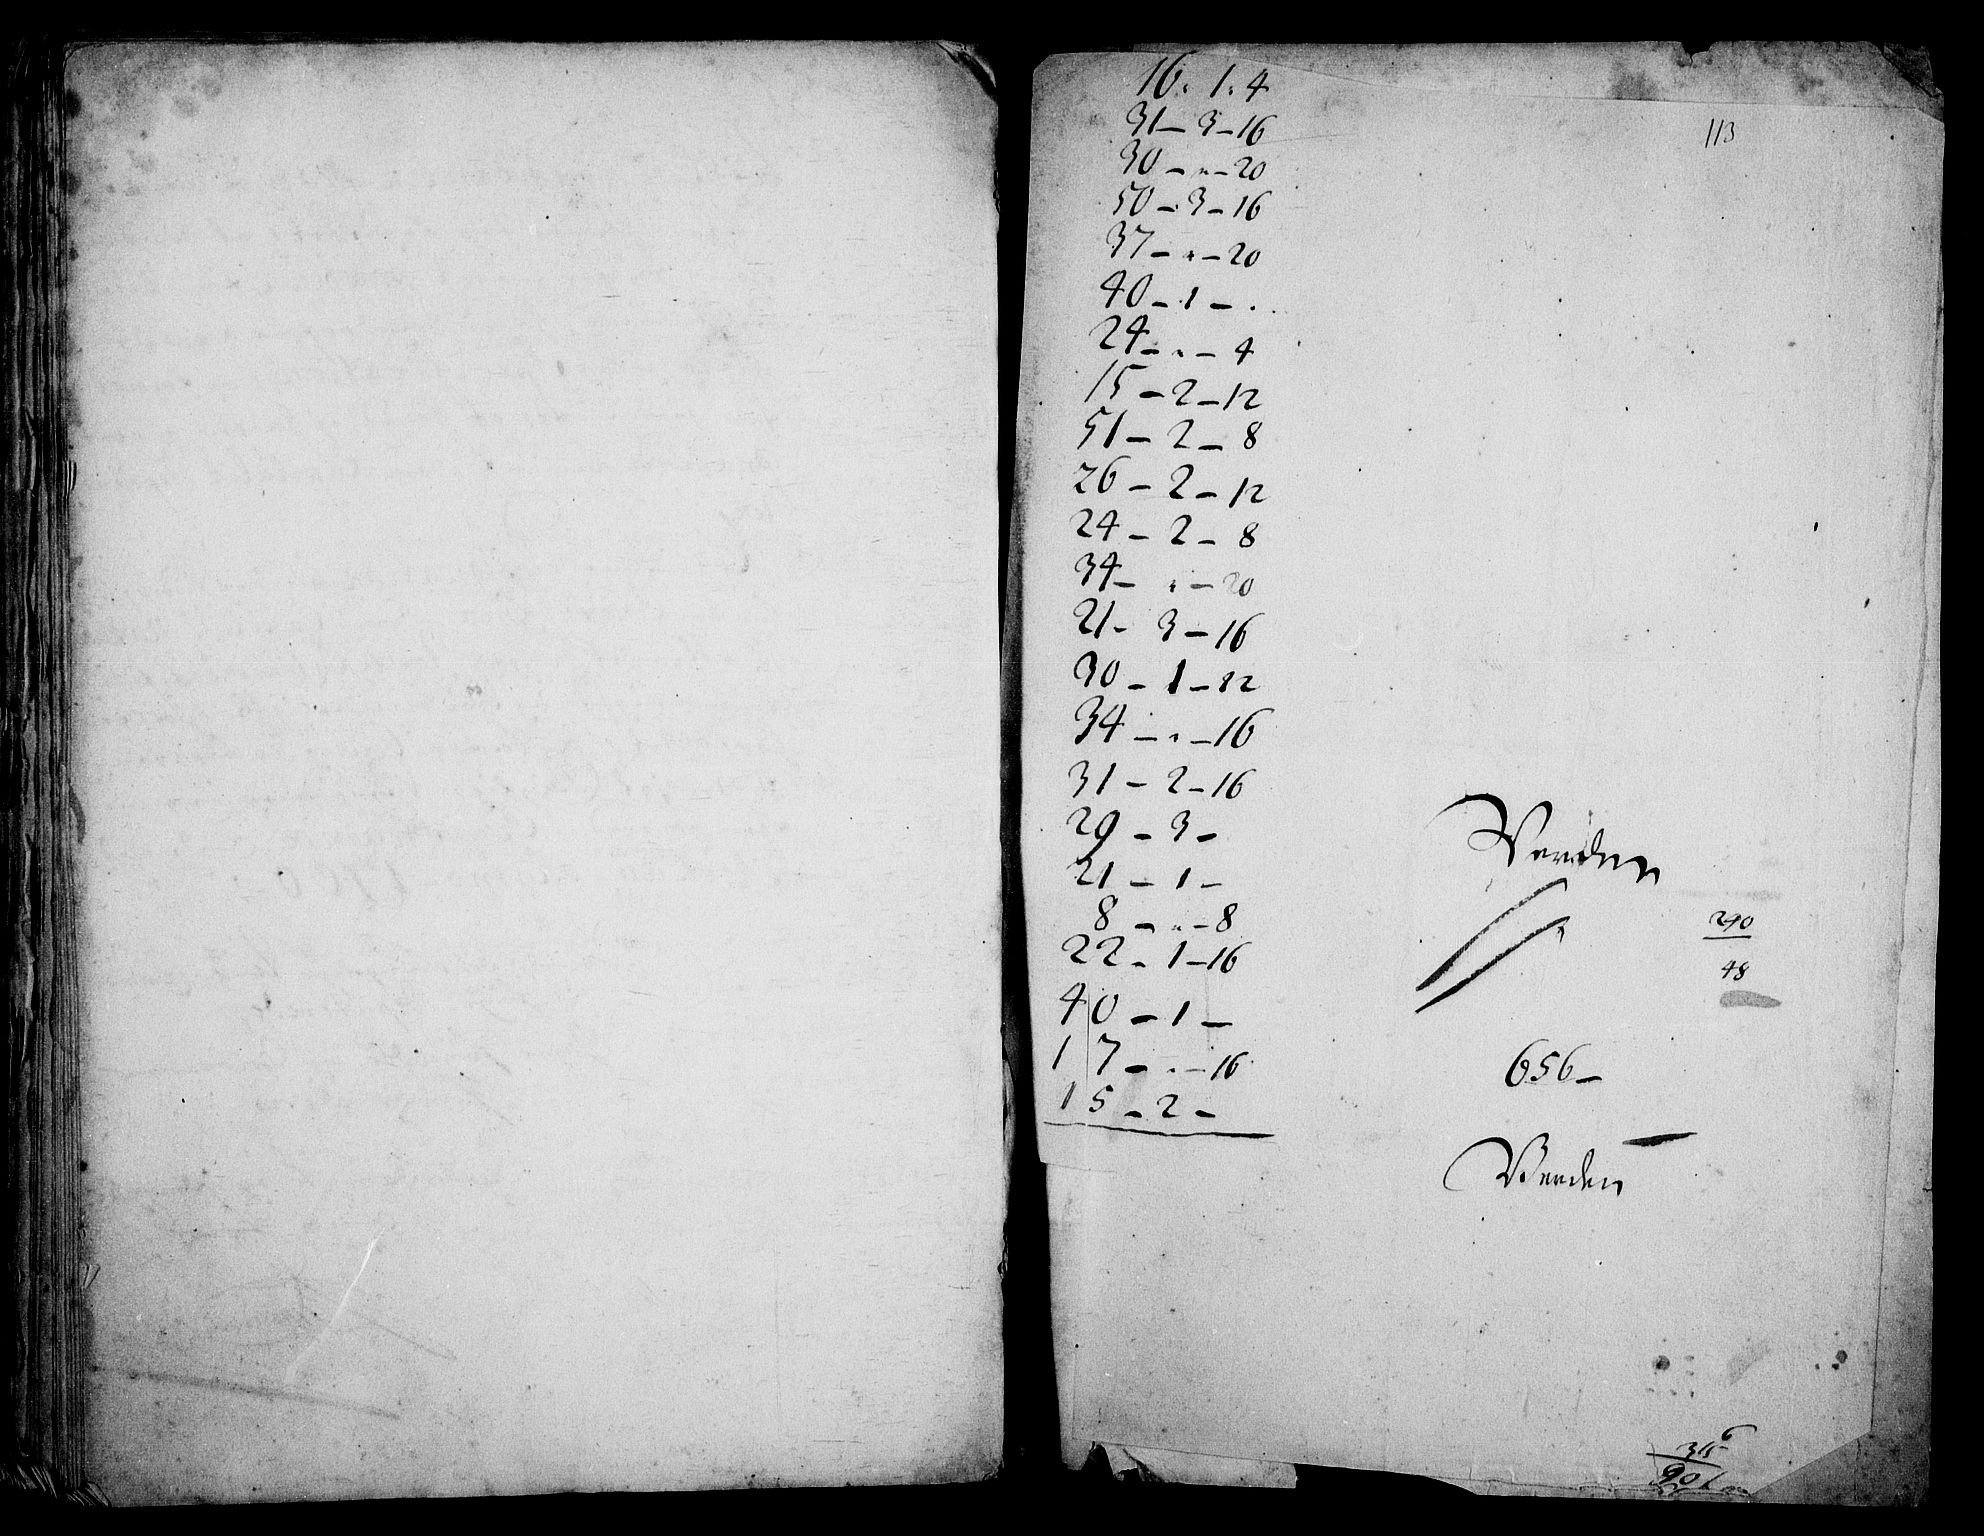 16. 1. 4
113
31 – 3 – 16
30 – " – 20
50 – 3 – 16
37 – " – 20
40 – 1 – .
24 – " – 4
15 – 2 – 12
51 – 2 – 8
26 – 2 – 12
24 – 2 – 8
34 – " – 20
21 – 3 – 16
30 – 1 – 12
34 – " – 16
31 – 2 – 16
29 – 3 –
21 – 1 –
8 – " – 8
22 – 1 – 16
40 – 1 –
17 – " – 16
15 – 2 –
Verden
290
48
656 –
Verden